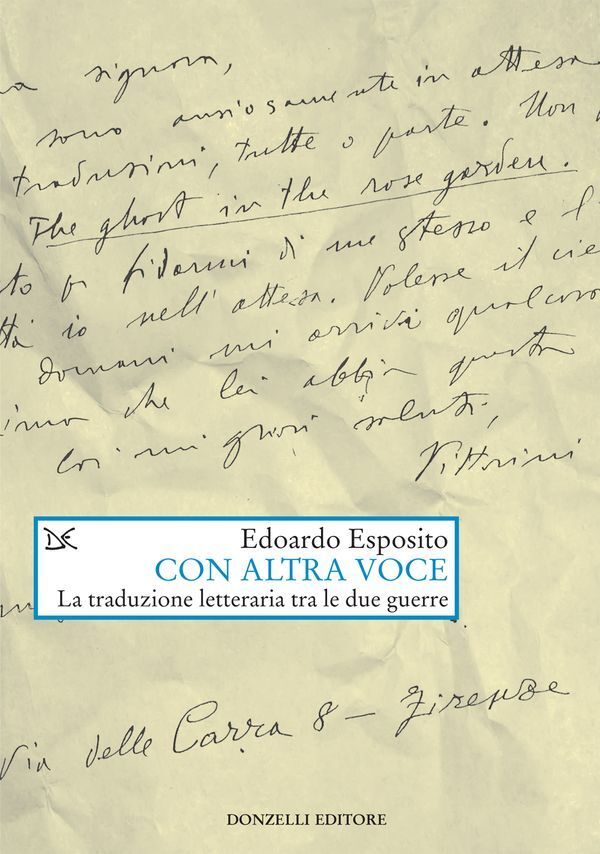 a signora,
sono ansiosamente in attesa
traduzioni, tutte o parte. Non
The ghost in the rose garden.
to fidarmi di me stesso e l'
io nell'attesa. Volesse il cie
domani mi arrivi qualcosa
ima che lei abbia questa
miei saluti,
Vittorini
DE
Edoardo Esposito
CON ALTRA VOCE
La traduzione letteraria tra le due guerre
Via delle Carra 8 – Firenze
DONZELLI EDITORE